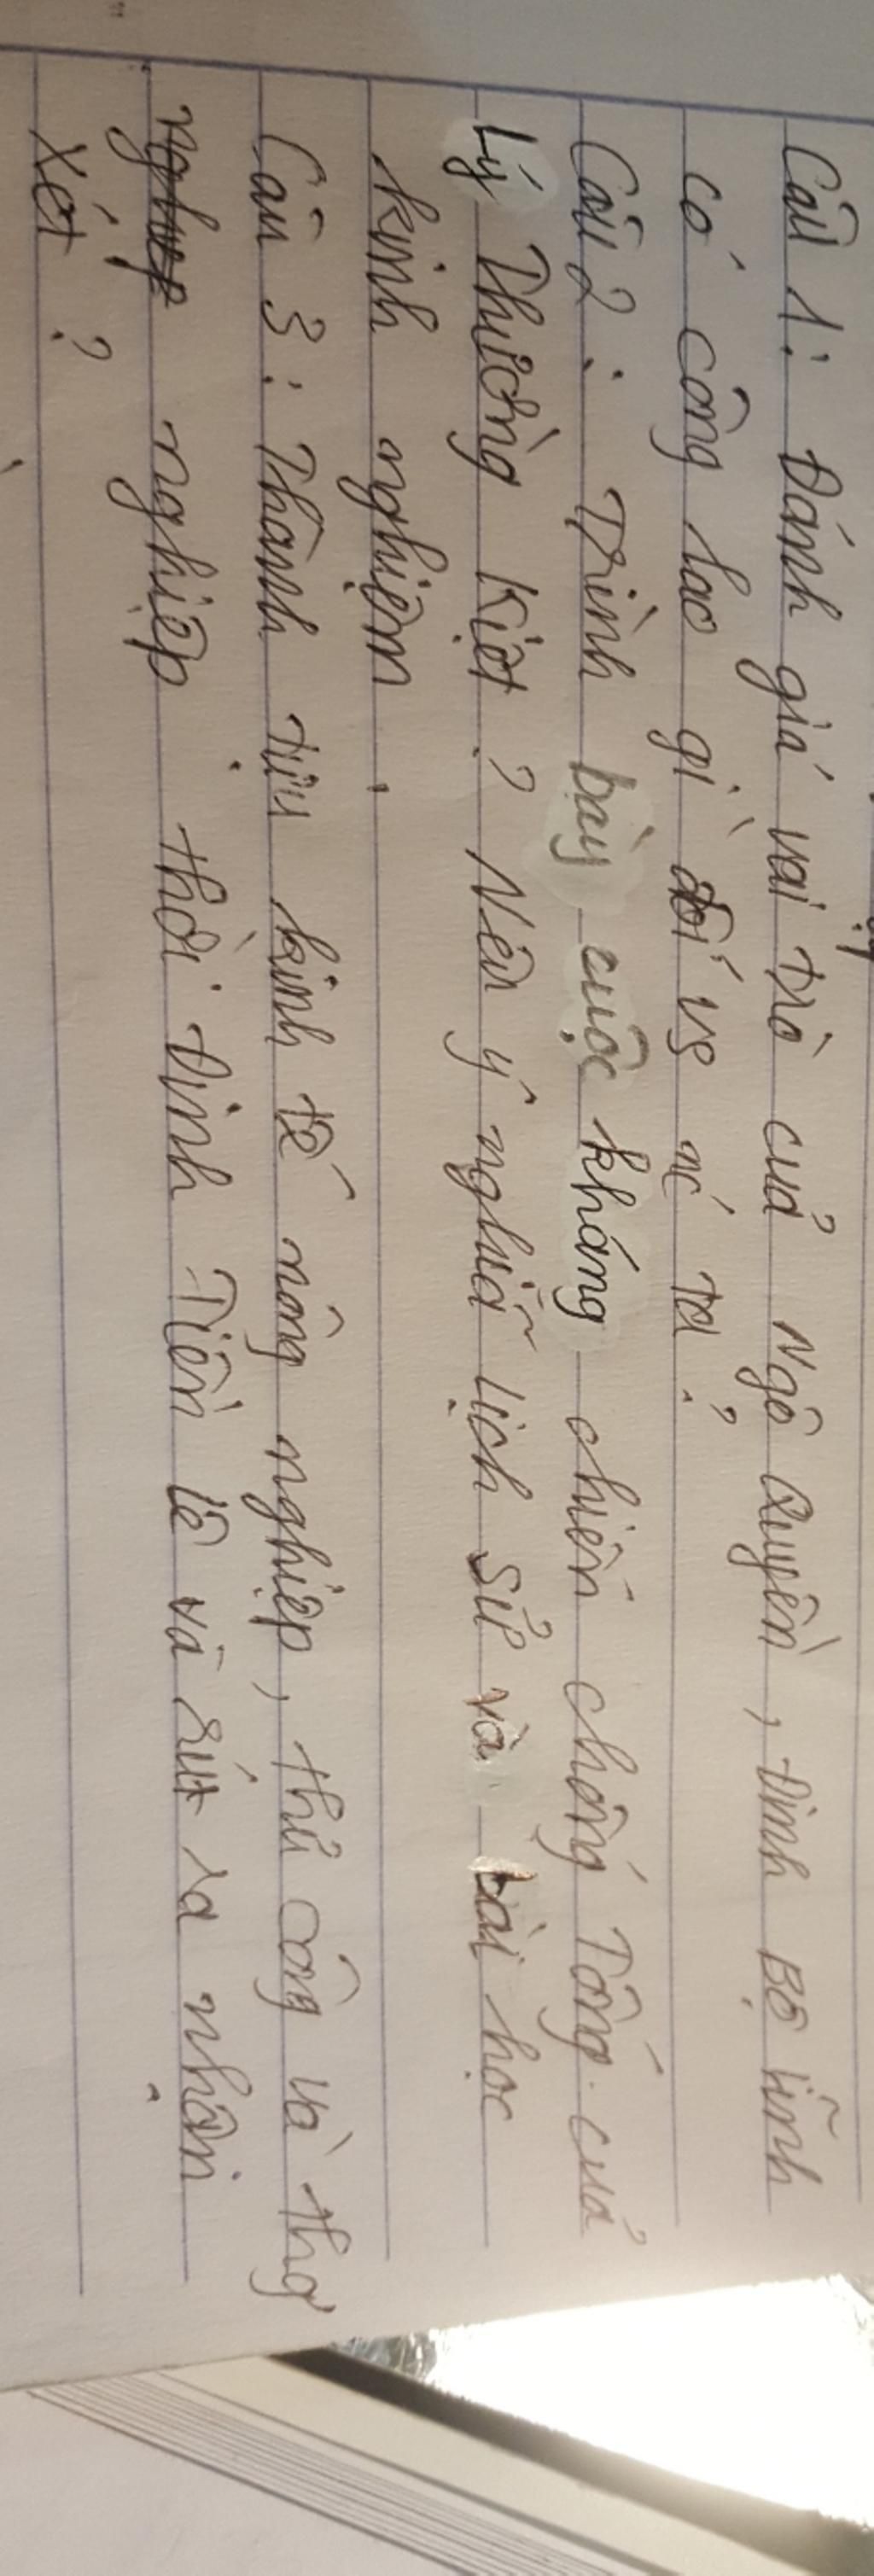 Câu 1: Đánh giá vai trò của Ngô Quyền, Đinh Bộ Lĩnh
có công lao gì đối vs nc ta?
Câu 2: Trình bày cuộc kháng chiến chống Tống của
Lý Thường Kiệt? Nêu ý nghĩa lịch sử và bài học
kinh nghiệm.
Câu 3: Thành tựu kinh tế nông nghiệp, thủ công và thg
nghiệp thời Đinh Tiền Lê và rút ra nhận
xét?